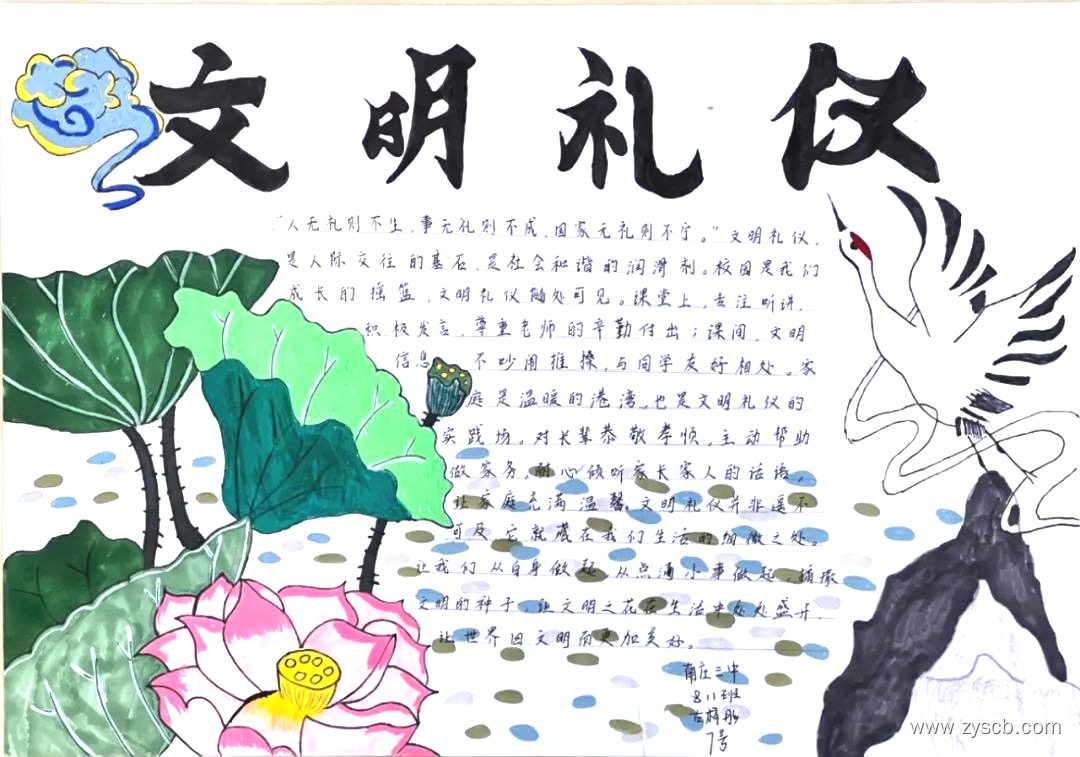 文明礼仪
"人无礼则不生,事无礼则不成,国家无礼则不宁。"文明礼仪,
是人际交往的基石,是社会和谐的润滑剂。校园是我们
成长的摇篮,文明礼仪随处可见。课堂上,专注听讲,
积极发言,尊重老师的辛勤付出;课间,文明
信息 不吵闹推搡,与同学友好相处。家
庭是温暖的港湾,也是文明礼仪的
实践场。对长辈恭敬孝顺,主动帮助
做家务,耐心倾听家长家人的话语,
让家庭充满温馨。文明礼仪并非遥不
可及 它就藏在我们生活的细微之处。
让我们从自身做起 从点滴小事做起,播撒
文明的种子,让文明之花在生活中处处盛开,
让世界因文明而更加美好。
南庄三中
811班
7号
www.zyscb.com